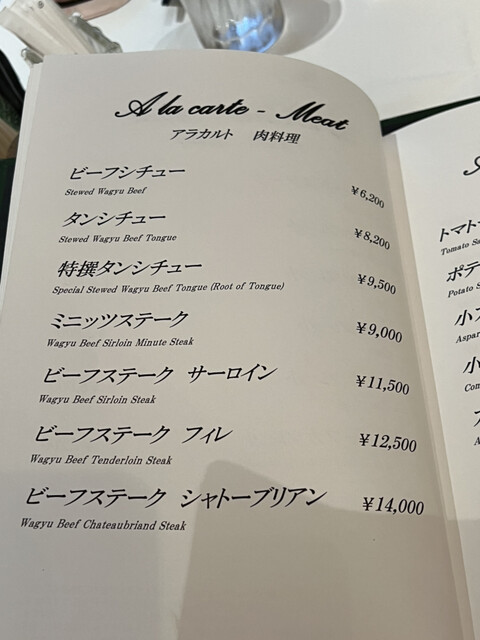 A la carte - Meat
アラカルト 肉料理
ビーフシチュー
Stewed Wagyu Beef
¥6,200
タンシチュー
Stewed Wagyu Beef Tongue
¥8,200
特撰タンシチュー
Special Stewed Wagyu Beef Tongue (Root of Tongue)
¥9,500
ミニッツステーク
Wagyu Beef Sirloin Minute Steak
¥9,000
ビーフステーク サーロイン
Wagyu Beef Sirloin Steak
¥11,500
ビーフステーク フィレ
Wagyu Beef Tenderloin Steak
¥12,500
ビーフステーク シャトーブリアン
Wagyu Beef Chateaubriand Steak
¥14,000
トマト
Tomato
ポテ
Potato
小
小